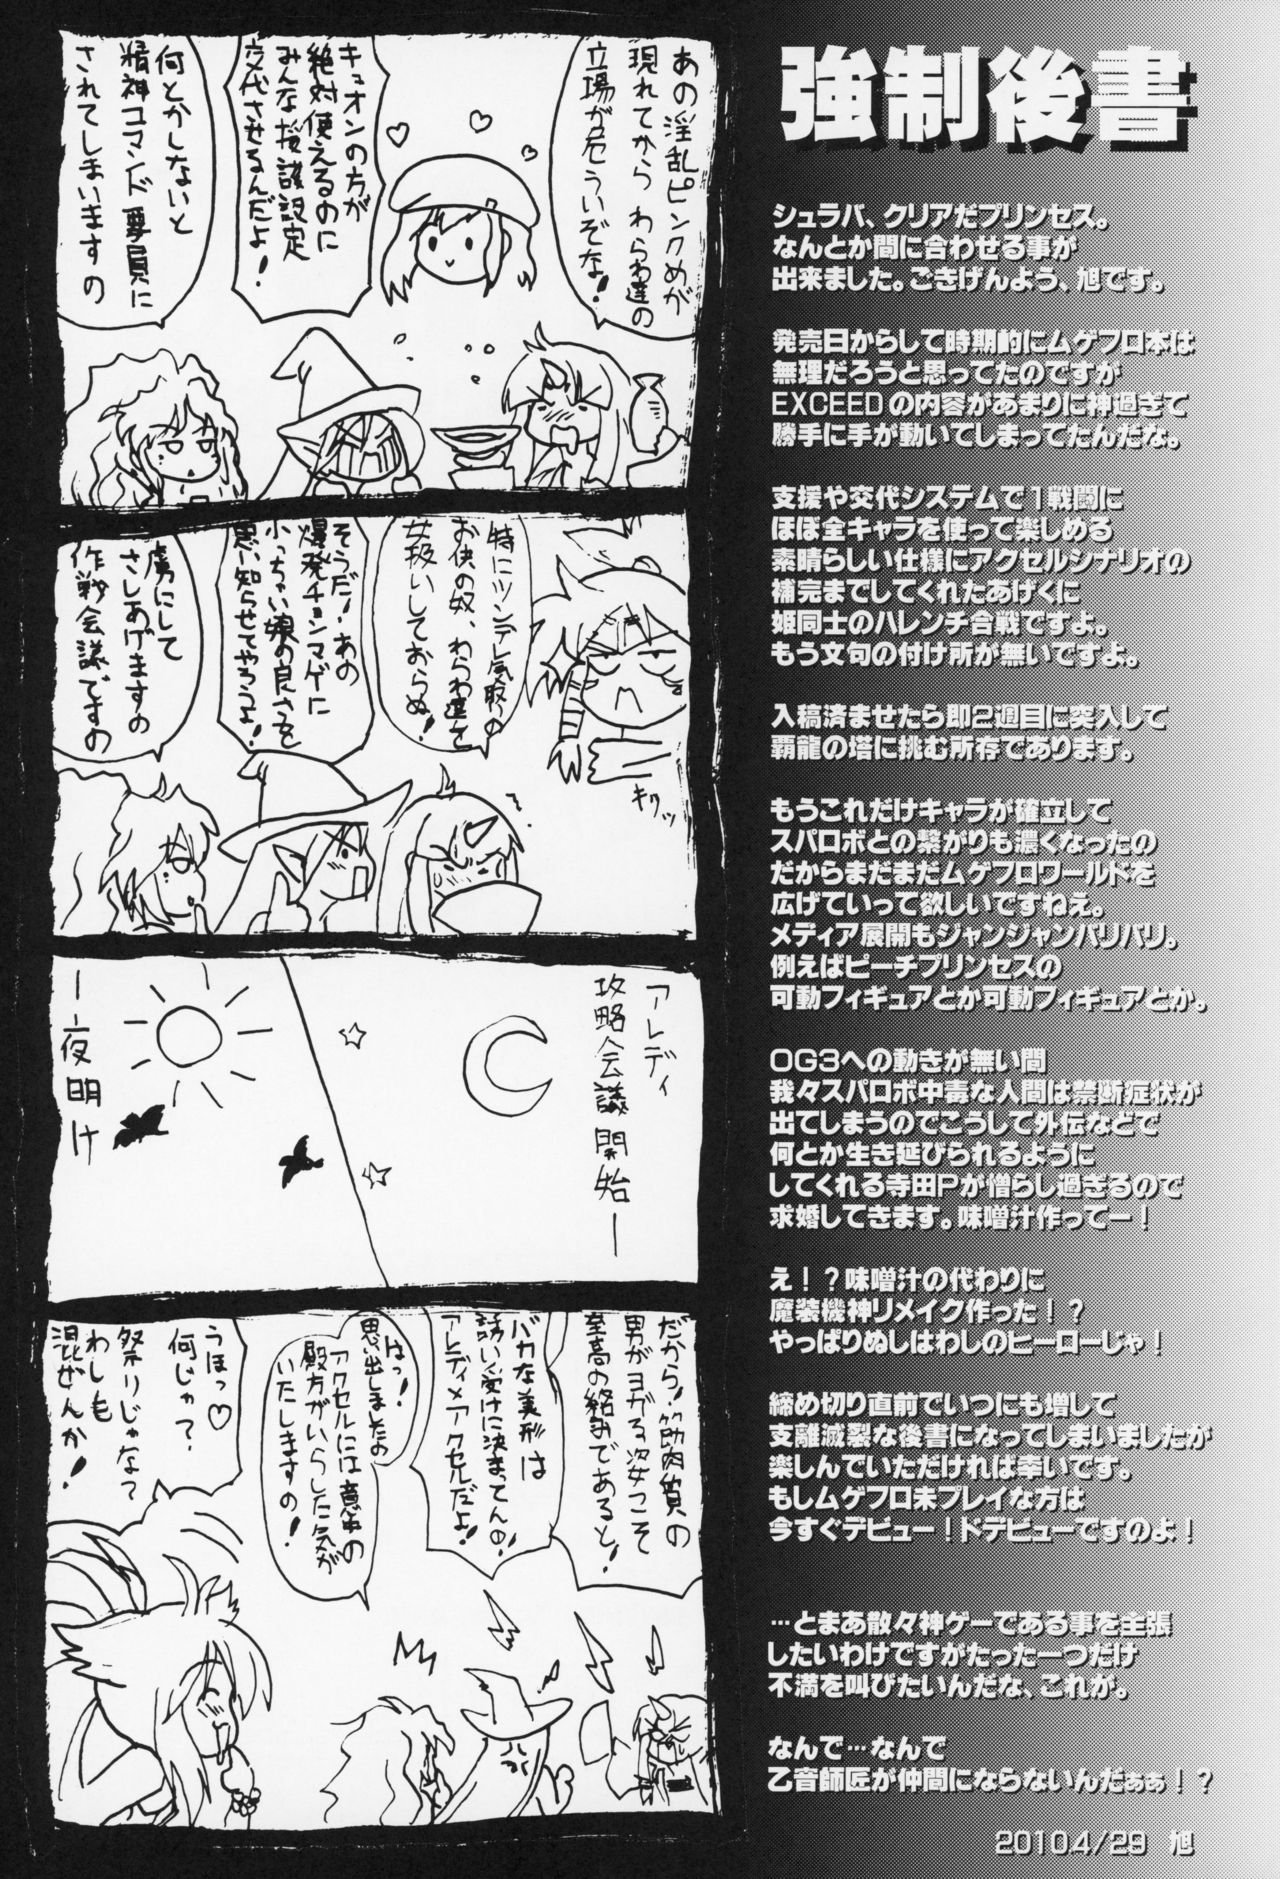 強制後書
シュラバ、クリアだプリンセス。
なんとか間に合わせる事が
出来ました。ごきげんよう、旭です。
発売日からして時期的にムゲフロ本は
無理だろうと思ってたのですが
EXCEEDの内容があまりに神過ぎて
勝手に手が動いてしまってたんだな。
支援や交代システムで1戦闘に
ほぼ全キャラを使って楽しめる
素晴らしい仕様にアクセルシナリオの
補完までしてくれたあげくに
姫同士のハレンチ合戦ですよ。
もう文句の付け所が無いですよ。
入稿済ませたら即2週目に突入して
覇龍の塔に挑む所存であります。
もうこれだけキャラが確立して
スパロボとの繋がりも濃くなったの
だからまだまだムゲフロワールドを
広げていって欲しいですねえ。
メディア展開もジャンジャンバリバリ。
例えばピーチプリンセスの
可動フィギュアとか可動フィギュアとか。
OG3への動きが無い間
我々スパロボ中毒な人間は禁断症状が
出てしまうのでこうして外伝などで
何とか生き延びられるように
してくれる寺田Pが憎らし過ぎるので
求婚してきます。味噌汁作ってー！
え！？味噌汁の代わりに
魔装機神リメイク作った！？
やっぱりぬしはわしのヒーローじゃ！
締め切り直前でいつにも増して
支離滅裂な後書になってしまいましたが
楽しんでいただければ幸いです。
もしムゲフロ未プレイな方は
今すぐデビュー！ドデビューですのよ！
…とまあ散々神ゲーである事を主張
したいわけですがたった一つだけ
不満を叫びたいんだな、これが。
なんで…なんで
乙音師匠が仲間にならないんだぁぁ！？
2010.4/29 旭
あの淫乱ピンクめが
現れてから わらわ達の
立場が危ういぞな！
キュオンの方が
絶対使えるのに
みんな援護設定
交代させるんだよ！
何とかしないと
精神コマンド要員に
されてしまいますの
特にツンデレ気取りの
お供の奴、わらわ達を
女扱いしておらぬ！
そうだ！あの
爆発チョンマゲに
小っちゃい娘の良さを
思い知らせてやろうよ！
虜にして
さしあげますの
作戦会議ですの
キリッ
アレディ
攻略会議開始ー
ー夜明け
だから！筋肉質の
男がヨガる姿こそ
至高の絡みであると！
バカな美形は
誘い受けに決まってんの！
アレディ×アクセルだよ！
はっ！
思い出しましたの
アクセルには意中の
殿方がいらした気が
いたしますの！
うほっ♡
何じゃ？
祭りじゃな？
わしも
混ぜんか！